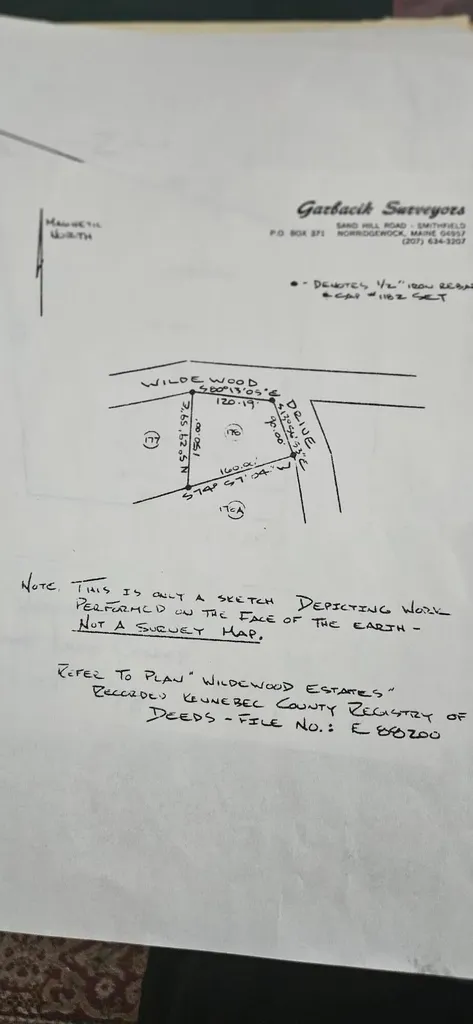 Garbacik Surveyors
SAND HILL ROAD - SMITHFIELD
P.O. BOX 371 NORRIDGEWOCK, MAINE 04957
(207) 634-3207
MAGNETIC
NORTH
● - DENOTES 1/2" IRON REBAR
& CAP #1182 SET
WILDEWOOD
DRIVE
S80°13'05"E
120.19'
150.00'
90.00'
160.00'
S74°57'04"W
177
176
176A
NOTE: THIS IS ONLY A SKETCH DEPICTING WORK
PERFORMED ON THE FACE OF THE EARTH -
NOT A SURVEY MAP.
REFER TO PLAN "WILDEWOOD ESTATES"
RECORDED KENNEBEC COUNTY REGISTRY OF
DEEDS - FILE NO.: E 88200